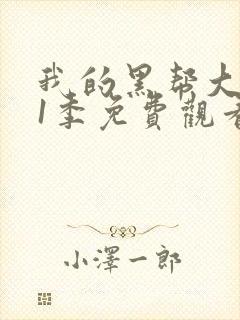 我的黑帮大
1季免費觀看
小澤一郎